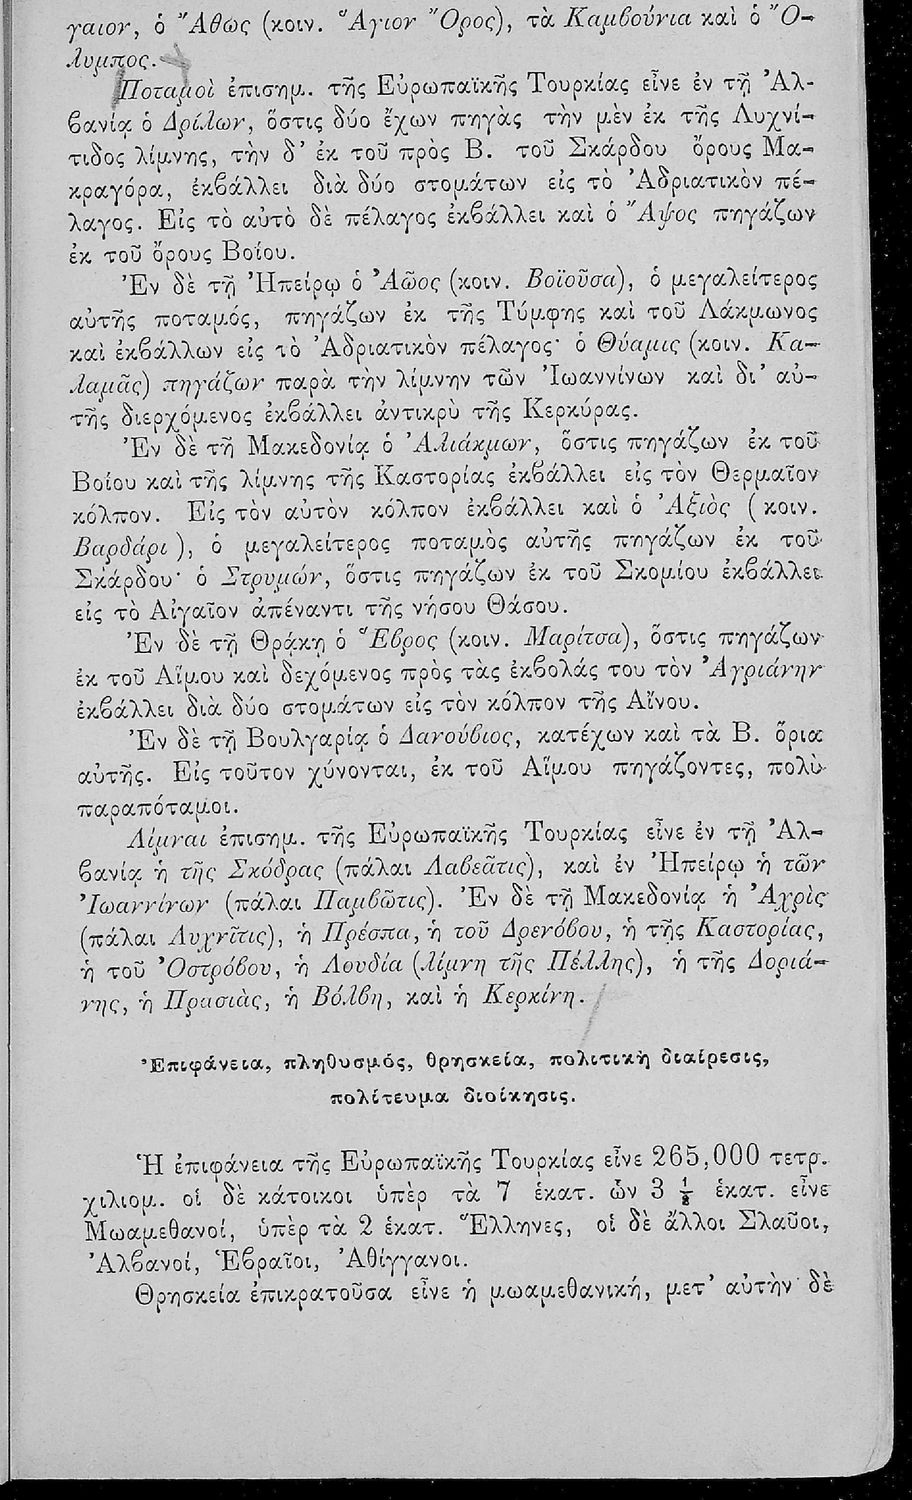 γαιον, ὁ Ἄθως (κοιν. Ἅγιον Ὄρος), τὰ Καμβούνια καὶ ὁ Ὄ-
λυμπος.
Ποταμοὶ ἐπισημ. τῆς Εὐρωπαϊκῆς Τουρκίας εἶνε ἐν τῇ Ἀλ-
βανίᾳ ὁ Δρίλων, ὅστις δύο ἔχων πηγὰς τὴν μὲν ἐκ τῆς Λυχνί-
τιδος λίμνης, τὴν δ' ἐκ τοῦ πρὸς Β. τοῦ Σκάρδου ὄρους Μα-
κραγόρα, ἐκβάλλει διὰ δύο στομάτων εἰς τὸ Ἀδριατικὸν πέ-
λαγος. Εἰς τὸ αὐτὸ δὲ πέλαγος ἐκβάλλει καὶ ὁ Ἄψος πηγάζων
ἐκ τοῦ ὄρους Βοίου.
Ἐν δὲ τῇ Ἠπείρῳ ὁ Ἀῶος (κοιν. Βοϊοῦσα), ὁ μεγαλείτερος
αὐτῆς ποταμός, πηγάζων ἐκ τῆς Τύμφης καὶ τοῦ Λάκμωνος
καὶ ἐκβάλλων εἰς τὸ Ἀδριατικὸν πέλαγος· ὁ Θύαμις (κοιν. Κα-
λαμᾶς) πηγάζων παρὰ τὴν λίμνην τῶν Ἰωαννίνων καὶ δι' αὐ-
τῆς διερχόμενος ἐκβάλλει ἀντικρὺ τῆς Κερκύρας.
Ἐν δὲ τῇ Μακεδονίᾳ ὁ Ἀλιάκμων, ὅστις πηγάζων ἐκ τοῦ
Βοίου καὶ τῆς λίμνης τῆς Καστορίας ἐκβάλλει εἰς τὸν Θερμαῖον
κόλπον. Εἰς τὸν αὐτὸν κόλπον ἐκβάλλει καὶ ὁ Ἀξιὸς (κοιν.
Βαρδάρι), ὁ μεγαλείτερος ποταμὸς αὐτῆς πηγάζων ἐκ τοῦ
Σκάρδου· ὁ Στρυμών, ὅστις πηγάζων ἐκ τοῦ Σκομίου ἐκβάλλει
εἰς τὸ Αἰγαῖον ἀπέναντι τῆς νήσου Θάσου.
Ἐν δὲ τῇ Θρᾴκῃ ὁ Ἕβρος (κοιν. Μαρίτσα), ὅστις πηγάζων
ἐκ τοῦ Αἵμου καὶ δεχόμενος πρὸς τὰς ἐκβολάς του τὸν Ἀγριάνην
ἐκβάλλει διὰ δύο στομάτων εἰς τὸν κόλπον τῆς Αἴνου.
Ἐν δὲ τῇ Βουλγαρίᾳ ὁ Δανούβιος, κατέχων καὶ τὰ Β. ὅρια
αὐτῆς. Εἰς τοῦτον χύνονται, ἐκ τοῦ Αἵμου πηγάζοντες, πολὺ
παραπόταμοι.
Λίμναι ἐπισημ. τῆς Εὐρωπαϊκῆς Τουρκίας εἶνε ἐν τῇ Ἀλ-
βανίᾳ ἡ τῆς Σκόδρας (πάλαι Λαβεᾶτις), καὶ ἐν Ἠπείρῳ ἡ τῶν
Ἰωαννίνων (πάλαι Παμβῶτις). Ἐν δὲ τῇ Μακεδονίᾳ ἡ Ἀχρὶς
(πάλαι Λυχνῖτις), ἡ Πρέσπα, ἡ τοῦ Δρενόβου, ἡ τῆς Καστορίας,
ἡ τοῦ Ὀστρόβου, ἡ Λουδία (λίμνη τῆς Πέλλης), ἡ τῆς Δοριά-
νης, ἡ Πρασιὰς, ἡ Βόλβη, καὶ ἡ Κερκίνη.
Ἐπιφάνεια, πληθυσμός, θρησκεία, πολιτικὴ διαίρεσις,
πολίτευμα διοίκησις.
Ἡ ἐπιφάνεια τῆς Εὐρωπαϊκῆς Τουρκίας εἶνε 265,000 τετρ.
χιλιομ. οἱ δὲ κάτοικοι ὑπὲρ τὰ 7 ἑκατ. ὧν 3 1/2 ἑκατ. εἶνε
Μωαμεθανοί, ὑπὲρ τὰ 2 ἑκατ. Ἕλληνες, οἱ δὲ ἄλλοι Σλαῦοι,
Ἀλβανοί, Ἑβραῖοι, Ἀθίγγανοι.
Θρησκεία ἐπικρατοῦσα εἶνε ἡ μωαμεθανική, μετ' αὐτὴν δὲ